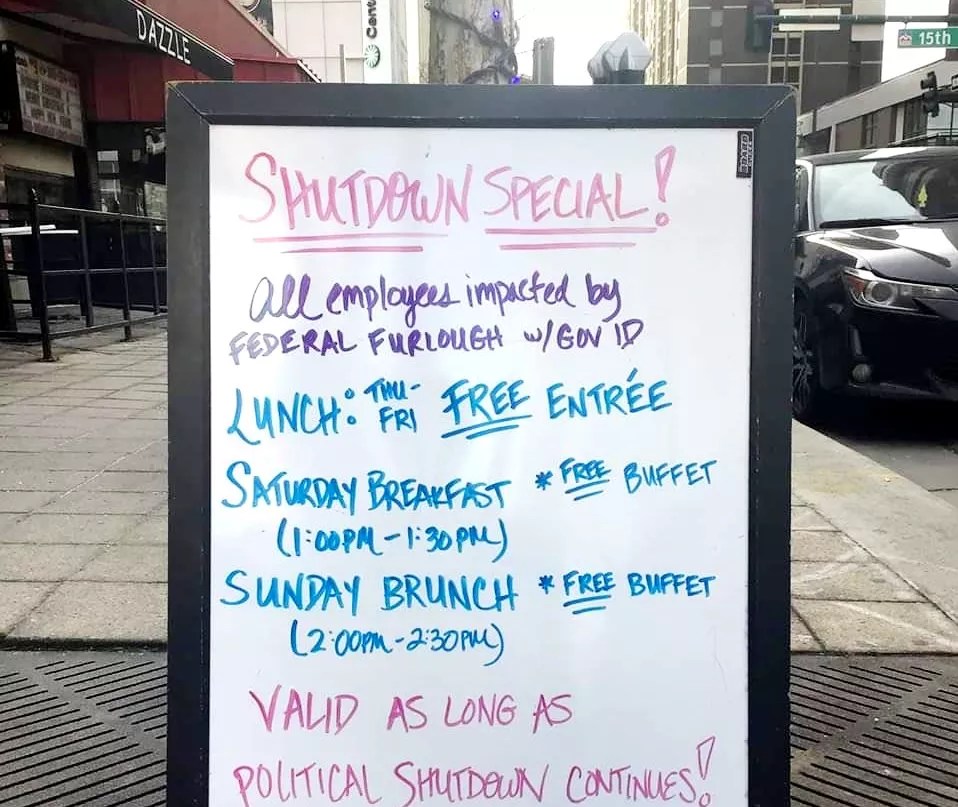 DAZZLE
Cent
15th
SHUTDOWN SPECIAL!
All employees impacted by
FEDERAL FURLOUGH w/GOV ID
LUNCH: THU-
FRI FREE ENTRÉE
SATURDAY BREAKFAST * FREE BUFFET
(1:00PM-1:30PM)
SUNDAY BRUNCH * FREE BUFFET
(2:00PM-2:30PM)
VALID AS LONG AS
POLITICAL SHUTDOWN CONTINUES!